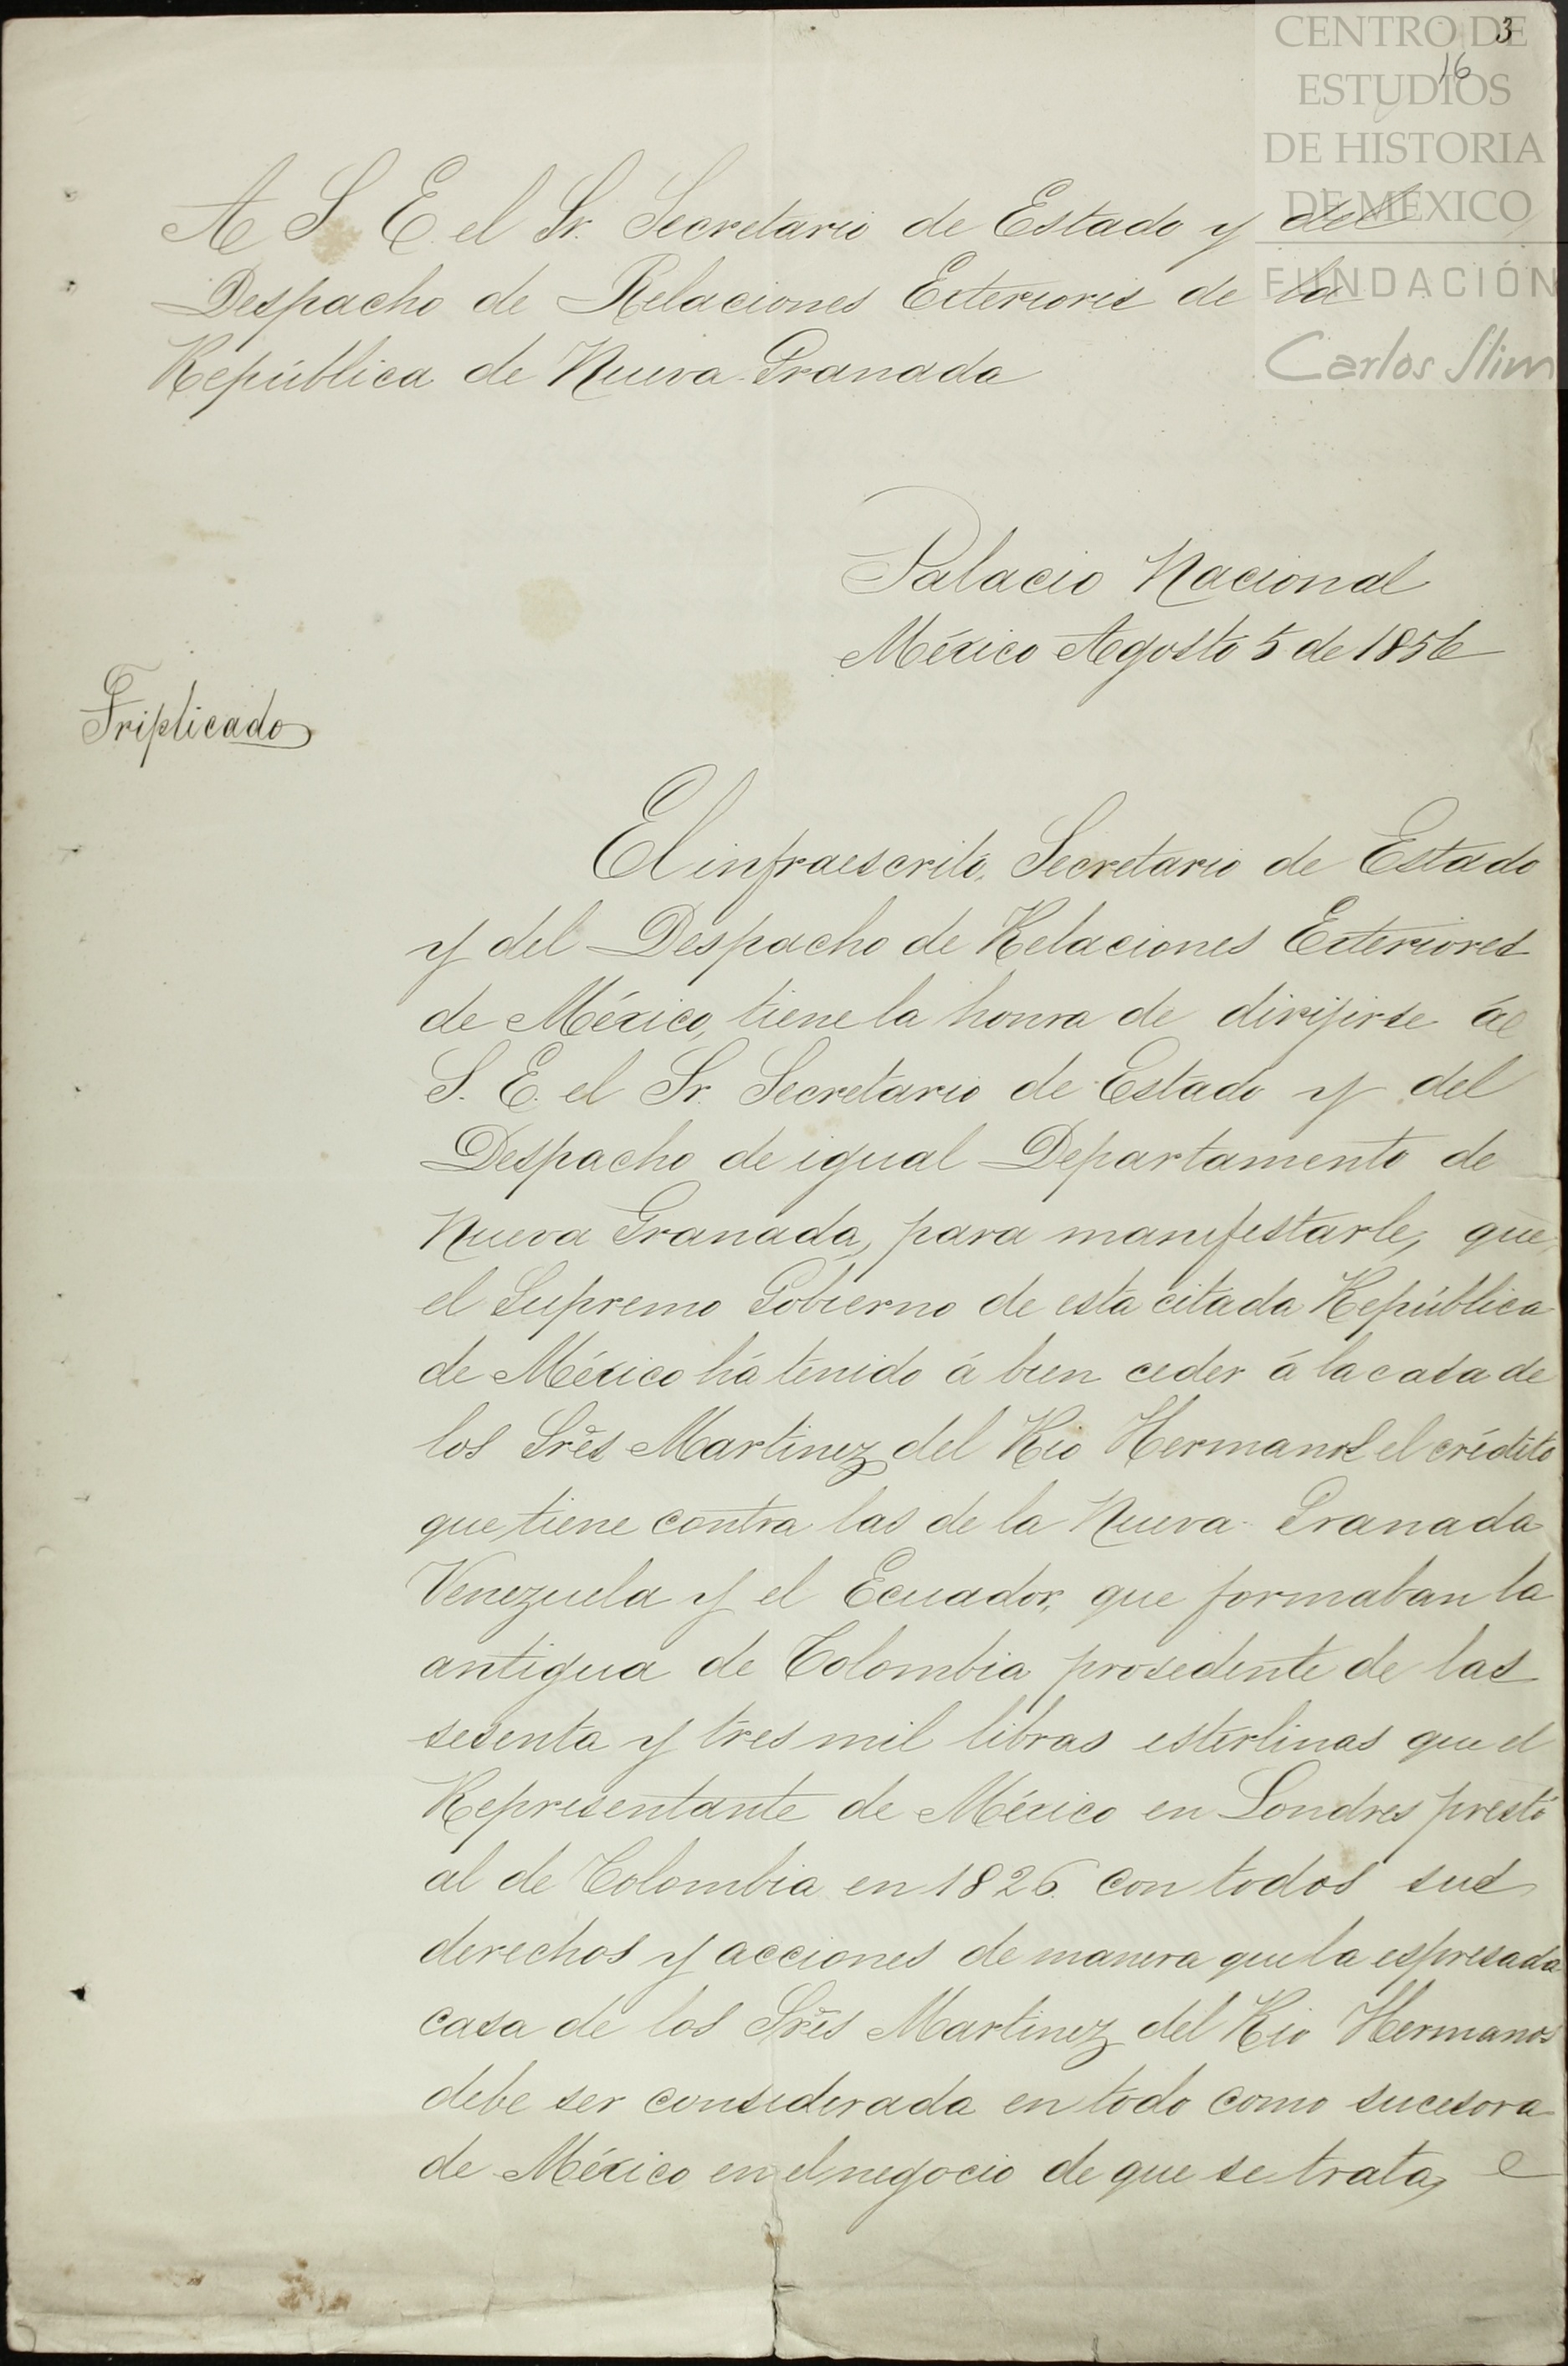 CENTRO DE
ESTUDIOS
DE HISTORIA
DE MÉXICO
FUNDACIÓN
Carlos Slim
3
16
A S. E. el Sr. Secretario de Estado y del
Despacho de Relaciones Exteriores de la
República de Nueva Granada
Palacio Nacional
México Agosto 5 de 1856
Triplicado
El infraescrito, Secretario de Estado
y del Despacho de Relaciones Exteriores
de México, tiene la honra de dirijirse á
S. E. el Sr. Secretario de Estado y del
Despacho de igual Departamento de
Nueva Granada, para manifestarle, que
el Supremo Gobierno de esta citada República
de México há tenido á bien ceder á la casa de
los Sres Martinez del Rio Hermanos el crédito
que tiene contra las de la Nueva Granada
Venezuela y el Ecuador, que formaban la
antigua de Colombia prosedente de las
sesenta y tres mil libras esterlinas que el
Representante de México en Londres prestó
al de Colombia en 1826 con todos sus
derechos y acciones de manera que la espresada
casa de los Sres Martinez del Rio Hermanos
debe ser considerada en todo como sucesora
de México en el negocio de que se trata, e